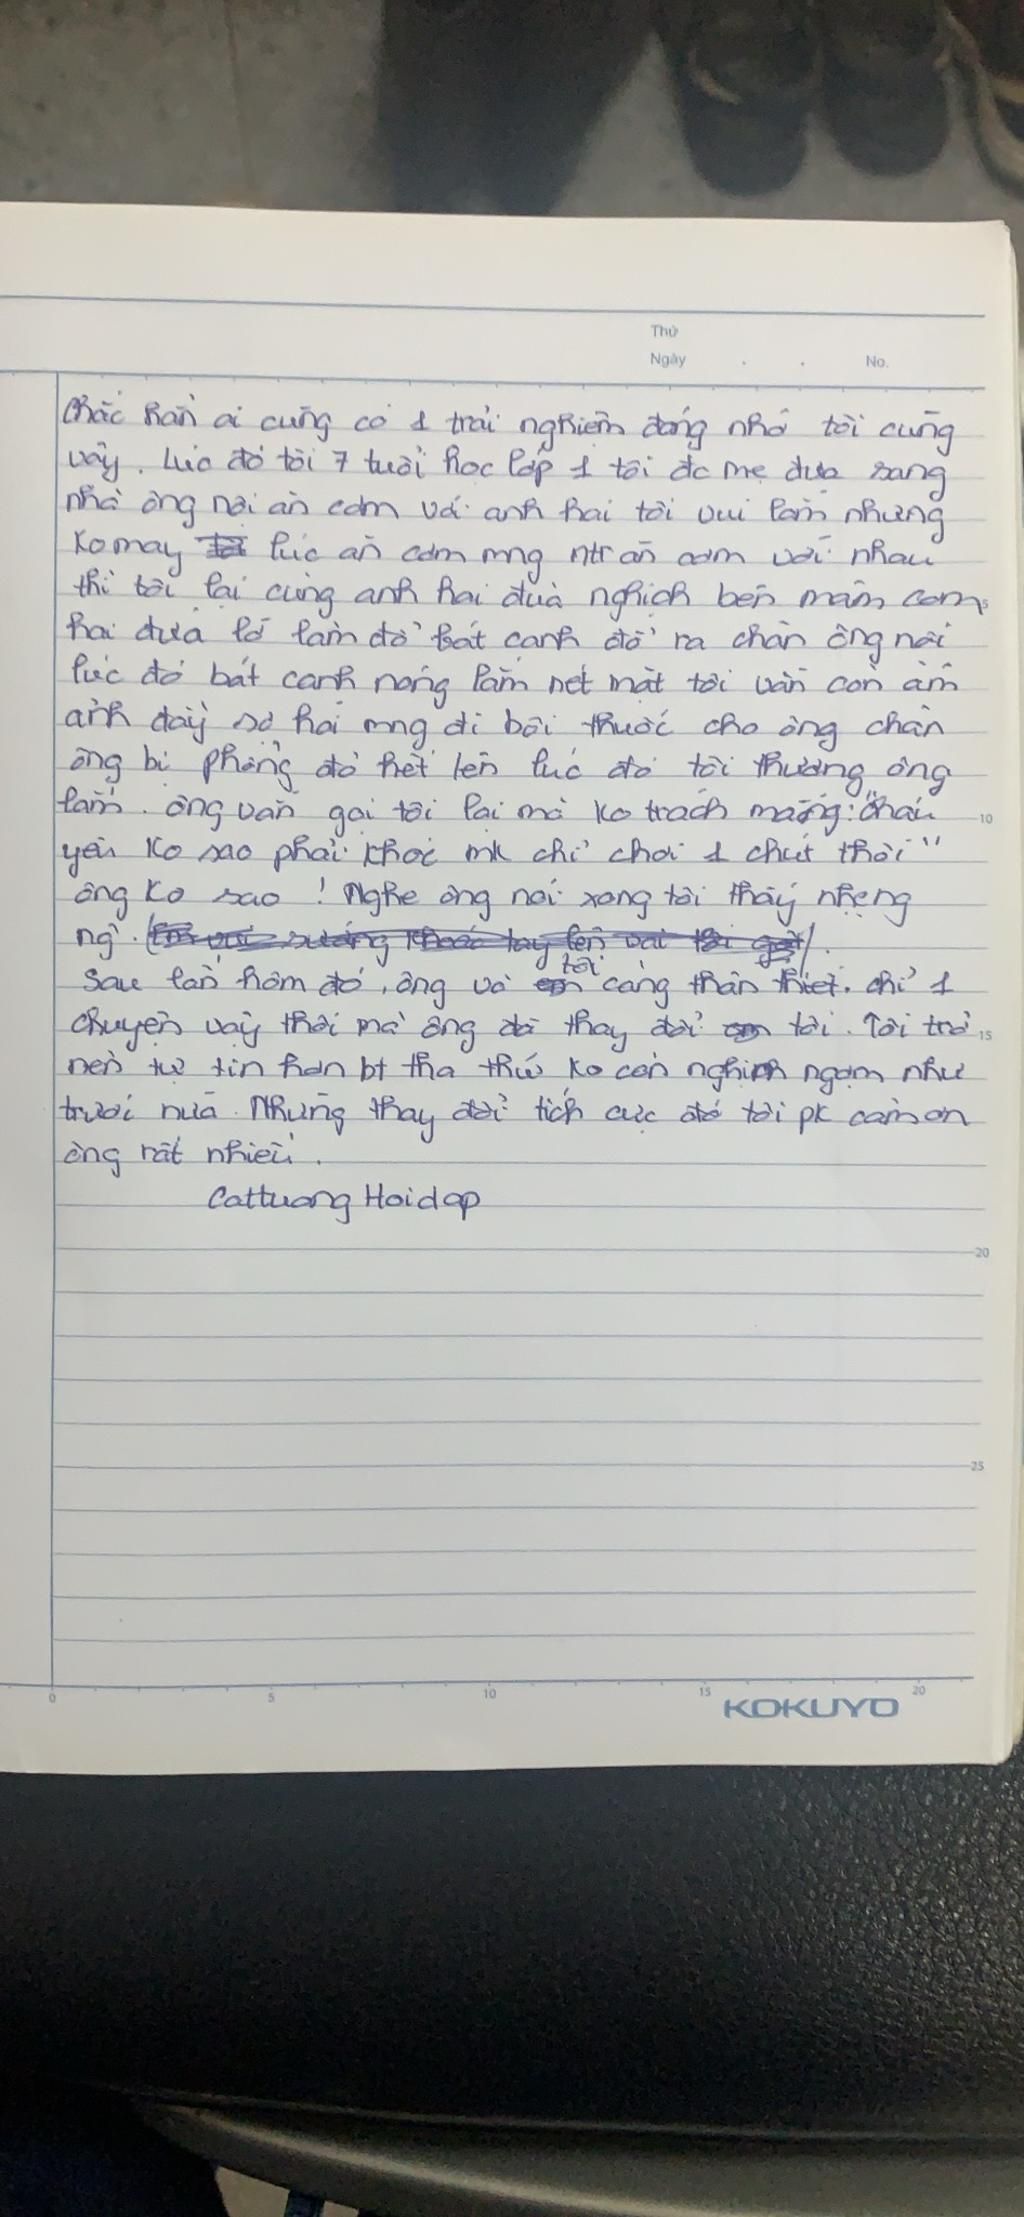 Thứ
Ngày . . No.
Chắc hẳn ai cũng có 1 trải nghiệm đáng nhớ tôi cũng
vậy. Lúc đó tôi 7 tuổi học lớp 1 tôi đc mẹ đưa sang
nhà ông nội ăn cơm với anh hai tôi vui lắm nhưng
ko may lúc ăn cơm mng ntr ăn cơm với nhau
thì tôi lại cùng anh hai đùa nghịch bên mâm cơm 5
hai đứa lỡ làm đổ bát canh đổ ra chân ông nội
lúc đó bát canh nóng lắm nét mặt tôi vẫn còn ám
ảnh đầy sợ hãi mng đi bôi thuốc cho ông chân
ông bị phỏng đỏ hết lên lúc đó tôi thương ông
lắm. ông vẫn gọi tôi lại mà ko trách mắng: "cháu 10
yên ko sao phải khóc mk chỉ chơi 1 chút thôi"
ông ko sao ! Nghe ông nói xong tôi thấy nhẹng
ng.
Sau lần hôm đó, ông và tôi càng thân thiết. chỉ 1
chuyện vậy thôi mà ông đã thay đổi tôi. Tôi trở 15
nên tự tin hơn bt tha thứ ko còn nghịch ngợm như
trươi nữa. Những thay đổi tích cực đó tôi pk cảm ơn
ông rất nhiều.
Cattuong Hoidap
20
25
0 5 10 15 20
KOKUYO